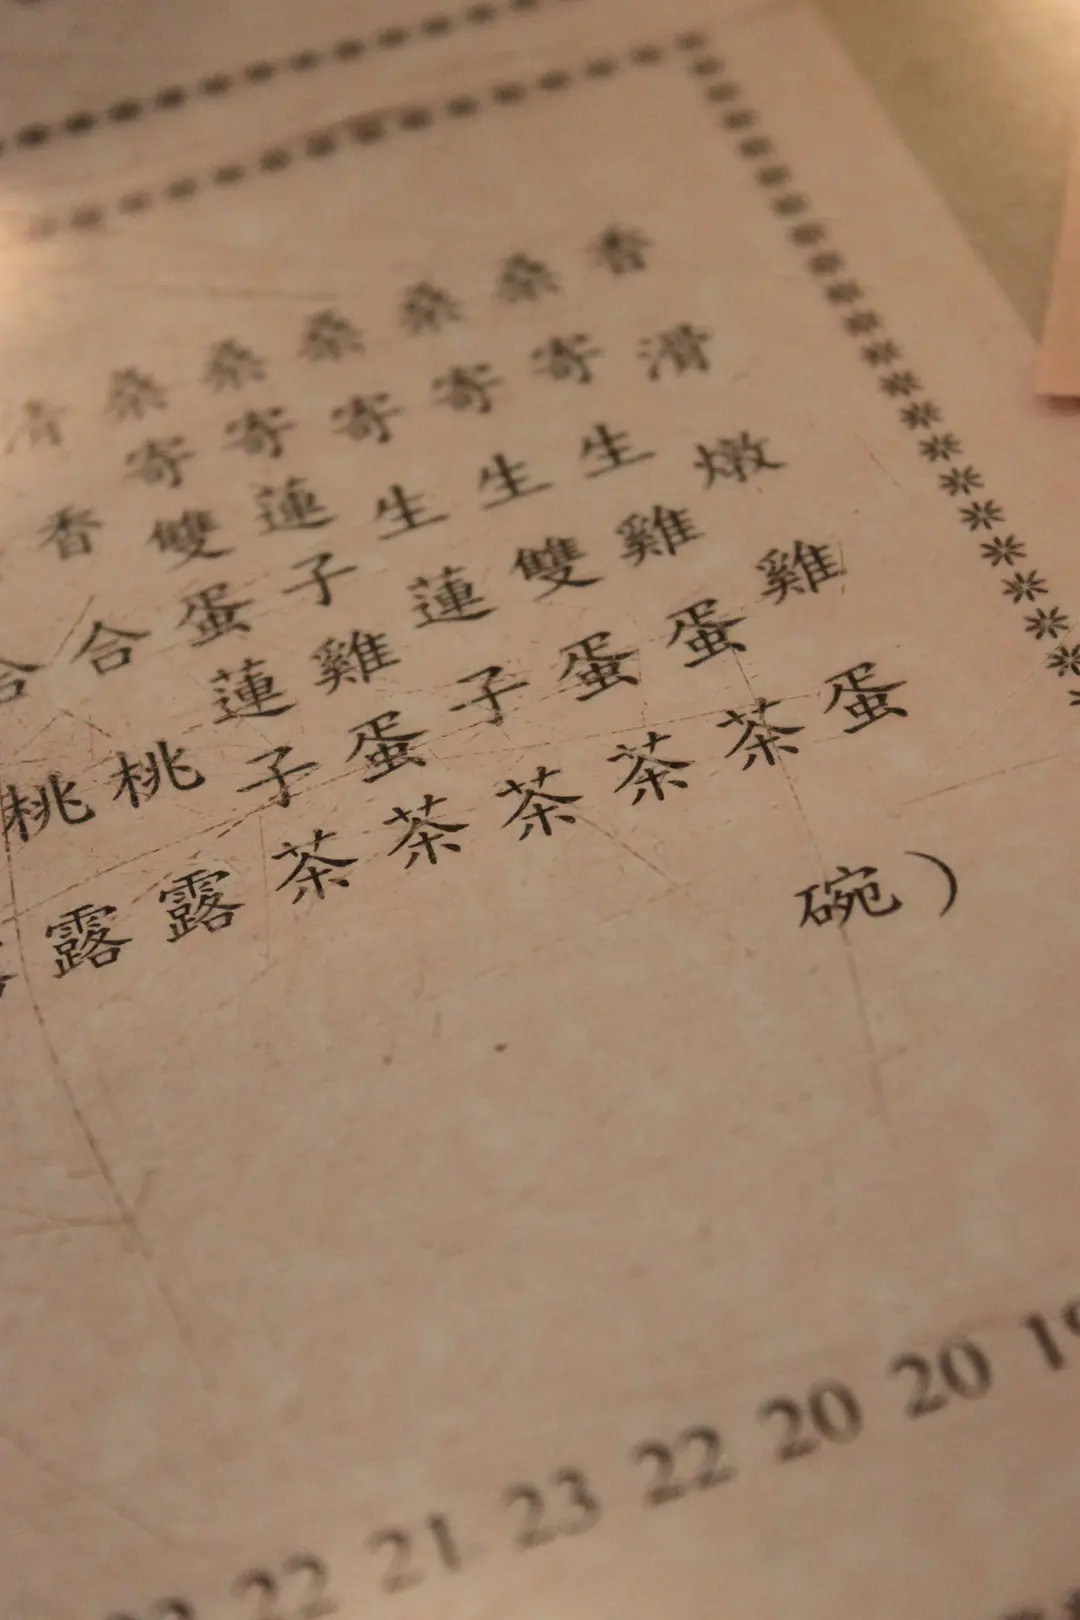 香滑燉雞蛋
桑寄生雞蛋茶
桑寄生雙蛋茶
桑寄生蓮子茶
桑寄蓮子雞蛋茶
桑寄雙蛋蓮子茶
清香合桃露
合桃露
碗）
22 21 23 22 20 20 19